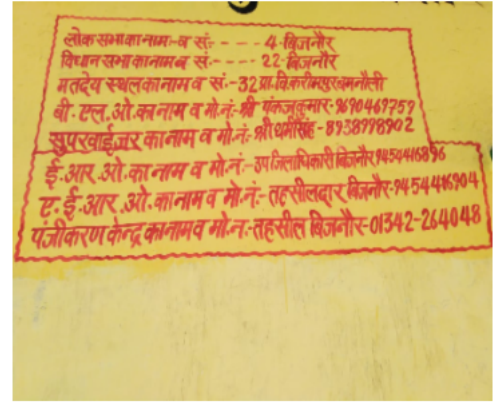 लोक सभा का नाम-व सं:- - - - 4-बिजनौर
विधान सभा का नाम व सं:- - - - 22-बिजनौर
मतदेय स्थल का नाम व सं.-32 प्रा.वि.करीमपुर बमनौली
बी. एल. ओ. का नाम व मो.नं:-श्री पंकज कुमार-9690469759
सुपरवाईजर का नाम व मो.नं:-श्री धर्म सिंह-8938998902
ई.आर.ओ. का नाम व मो.नं:-उपजिलाधिकारी बिजनौर 9454416896
ए.ई.आर.ओ. का नाम व मो.नं:-तहसीलदार बिजनौर-9454416904
पंजीकरण केन्द्र का नाम व मो.न.:-तहसील बिजनौर-01342-264048